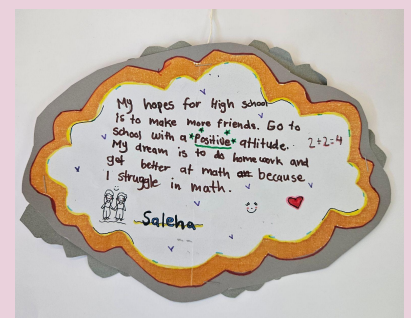 My hopes for High school
is to make more friends. Go to
school with a positive attitude.
2+2=4
My dream is to do homework and
get better at math because
I struggle in math.
Saleha